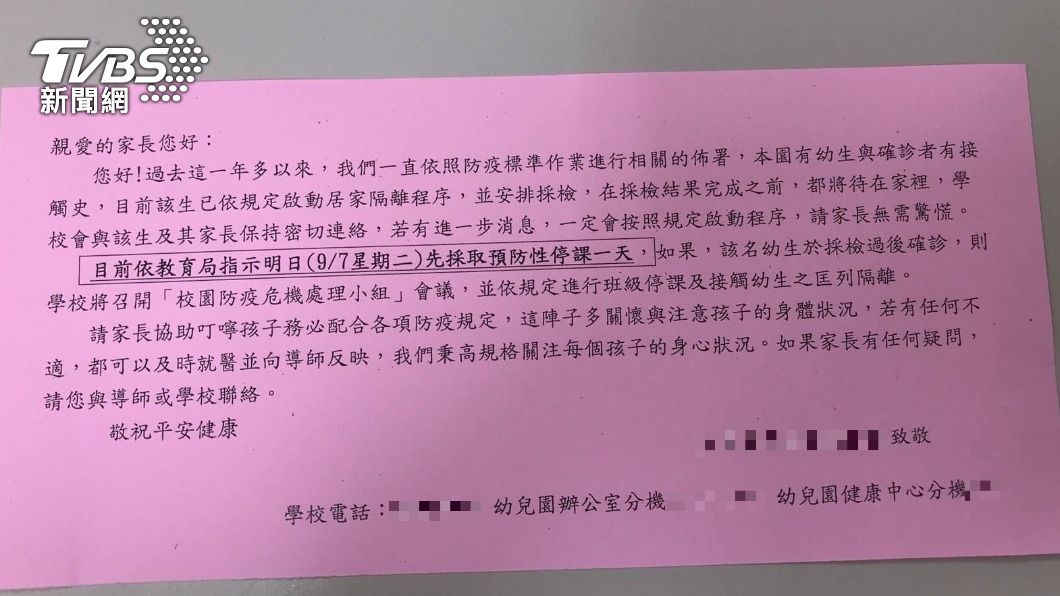 TVBS
新聞網
親愛的家長您好：
您好!過去這一年多以來，我們一直依照防疫標準作業進行相關的佈署，本園有幼生與確診者有接
觸史，目前該生已依規定啟動居家隔離程序，並安排採檢，在採檢結果完成之前，都將待在家裡，學
校會與該生及其家長保持密切連絡，若有進一步消息，一定會按照規定啟動程序，請家長無需驚慌。
目前依教育局指示明日(9/7星期二)先採取預防性停課一天，如果，該名幼生於採檢過後確診，則
學校將召開「校園防疫危機處理小組」會議，並依規定進行班級停課及接觸幼生之匡列隔離。
請家長協助叮嚀孩子務必配合各項防疫規定，這陣子多關懷與注意孩子的身體狀況，若有任何不
適，都可以及時就醫並向導師反映，我們秉高規格關注每個孩子的身心狀況。如果家長有任何疑問，
請您與導師或學校聯絡。
敬祝平安健康
致敬
學校電話： 幼兒園辦公室分機 幼兒園健康中心分機